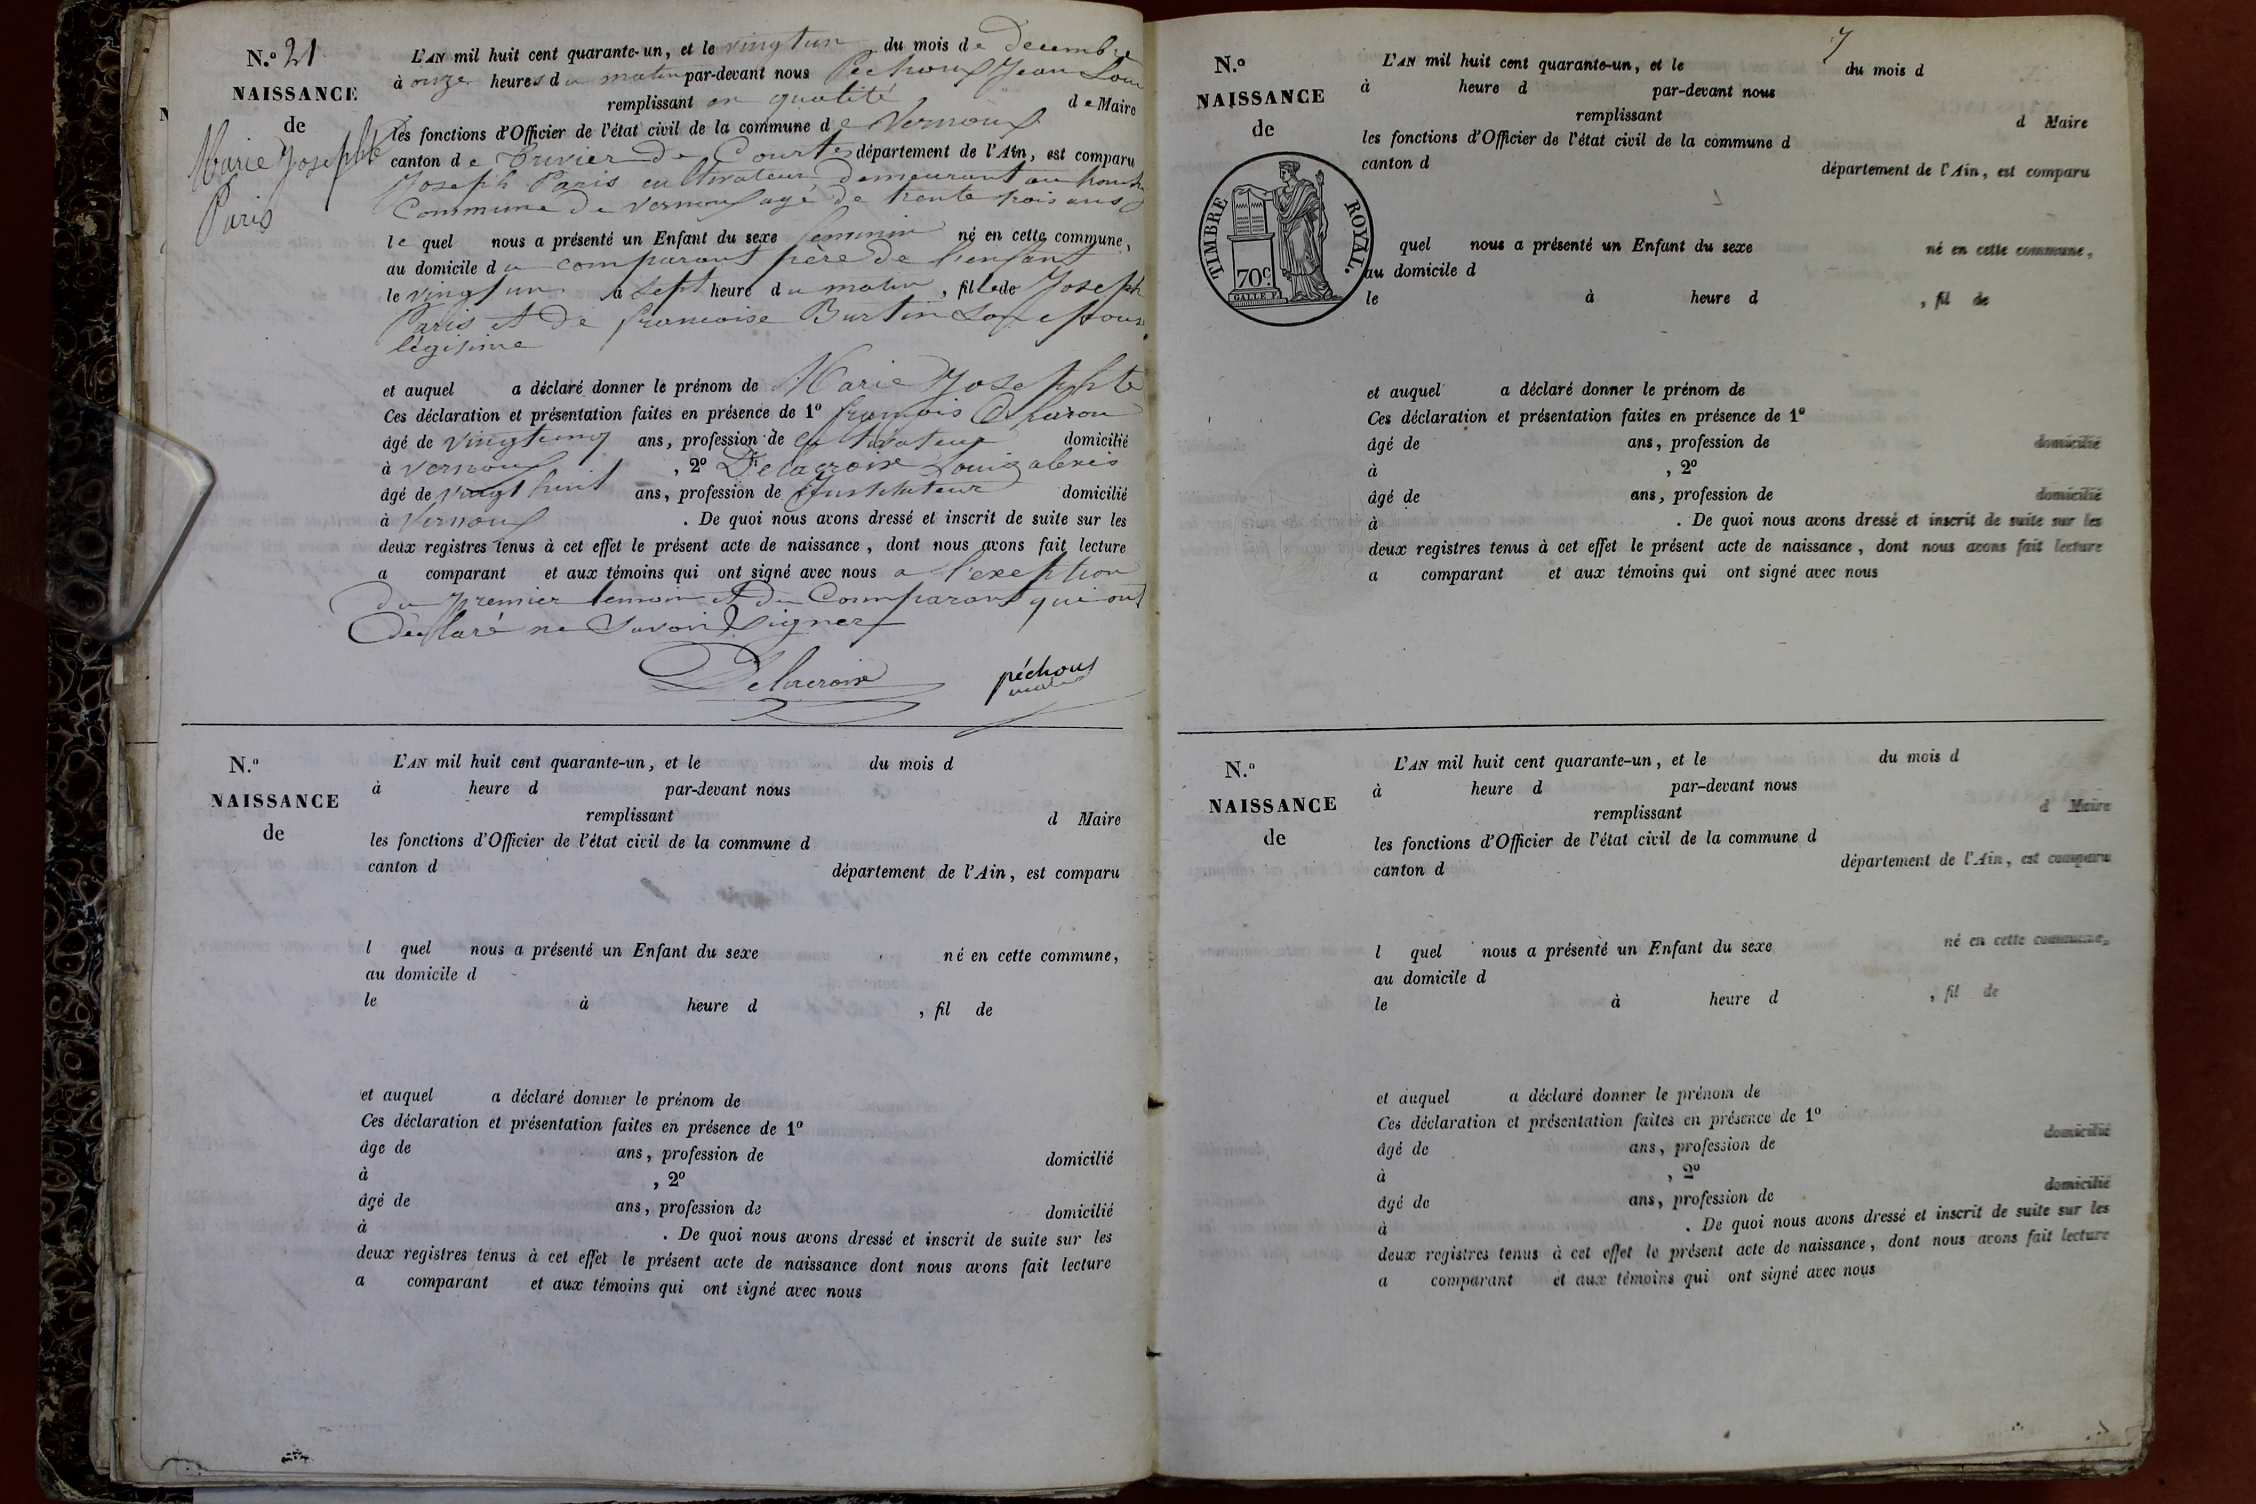 N.º 21
NAISSANCE
de
Marie Josephte
Paris
L'AN mil huit cent quarante-un, et le vingt un du mois de decembre
à onze heures du matin par-devant nous Pechoux Jean Louis
remplissant en qualité de Maire
les fonctions d'Officier de l'état civil de la commune de Vernoux
canton de Trivier De Courtes département de l'Ain, est comparu
Joseph Paris cultivateur demeurant au
Commune de Vernoux agé de trente trois ans
le quel nous a présenté un Enfant du sexe feminin né en cette commune,
au domicile du comparant père de l'enfant
le vingt un à sept heure du matin, fille de Joseph
Paris et De francoise Burtin Son epouse
légitime
et auquel a déclaré donner le prénom de Marie Josephte
Ces déclaration et présentation faites en présence de 1º françois Charon
âgé de vingt cinq ans, profession de cultivateur domicilié
à Vernoux, 2º Delacroix Louis alexis
âgé de vingt huit ans, profession de Instituteur domicilié
à Vernoux. De quoi nous avons dressé et inscrit de suite sur les
deux registres tenus à cet effet le présent acte de naissance, dont nous avons fait lecture
a comparant et aux témoins qui ont signé avec nous a l'exeption
du premier temoin et du Comparant qui ont
declaré ne Savoir Signer
Delacroix péchoux
maire
N.º
NAISSANCE
de
L'AN mil huit cent quarante-un, et le du mois d
à heure d par-devant nous
remplissant d Maire
les fonctions d'Officier de l'état civil de la commune d
canton d département de l'Ain, est comparu
l quel nous a présenté un Enfant du sexe né en cette commune,
au domicile d
le à heure d , fil de
et auquel a déclaré donner le prénom de
Ces déclaration et présentation faites en présence de 1º
âge de ans, profession de domicilié
à , 2º
âgé de ans, profession de domicilié
à . De quoi nous avons dressé et inscrit de suite sur les
deux registres tenus à cet effet le présent acte de naissance dont nous avons fait lecture
a comparant et aux témoins qui ont signé avec nous
7
N.º
NAISSANCE
de
TIMBRE ROYAL.
70 C.
L'AN mil huit cent quarante-un, et le du mois d
à heure d par-devant nous
remplissant d Maire
les fonctions d'Officier de l'état civil de la commune d
canton d département de l'Ain, est comparu
quel nous a présenté un Enfant du sexe né en cette commune,
au domicile d
le à heure d , fil de
et auquel a déclaré donner le prénom de
Ces déclaration et présentation faites en présence de 1º
âgé de ans, profession de domicilié
à , 2º
âgé de ans, profession de domicilié
à . De quoi nous avons dressé et inscrit de suite sur les
deux registres tenus à cet effet le présent acte de naissance, dont nous avons fait lecture
a comparant et aux témoins qui ont signé avec nous
N.º
NAISSANCE
de
L'AN mil huit cent quarante-un, et le du mois d
à heure d par-devant nous
remplissant d Maire
les fonctions d'Officier de l'état civil de la commune d
canton d département de l'Ain, est comparu
l quel nous a présenté un Enfant du sexe né en cette commune,
au domicile d
le à heure d , fil de
et auquel a déclaré donner le prénom de
Ces déclaration et présentation faites en présence de 1º
âgé de ans, profession de domicilié
à , 2º
âgé de ans, profession de domicilié
à . De quoi nous avons dressé et inscrit de suite sur les
deux registres tenus à cet effet le présent acte de naissance, dont nous avons fait lecture
a comparant et aux témoins qui ont signé avec nous